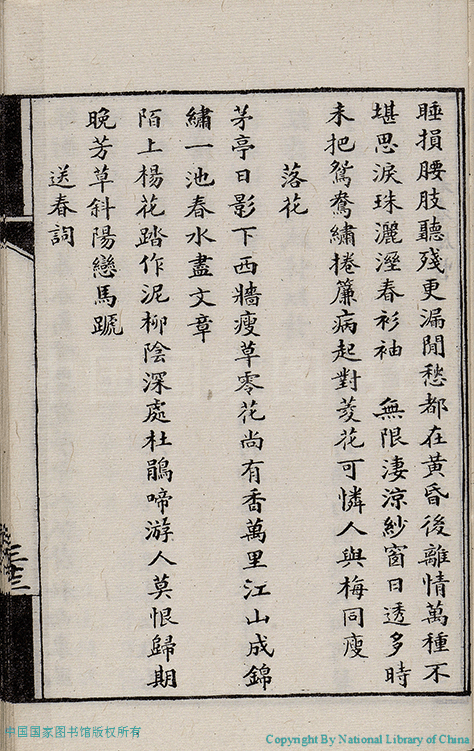 睡損腰肢聽殘更漏閒愁都在黃昏後離情萬種不
堪思淚珠灑溼春衫袖　無限淒涼紗窗日透多時
未把鴛鴦繡捲簾病起對菱花可憐人與梅同瘦
落花
茅亭日影下西牆瘦草零花尚有香萬里江山成錦
繡一池春水盡文章
陌上楊花踏作泥柳陰深處杜鵑啼游人莫恨歸期
晚芳草斜陽戀馬蹏
送春詞
中国国家图书馆版权所有
Copyright By National Library of China